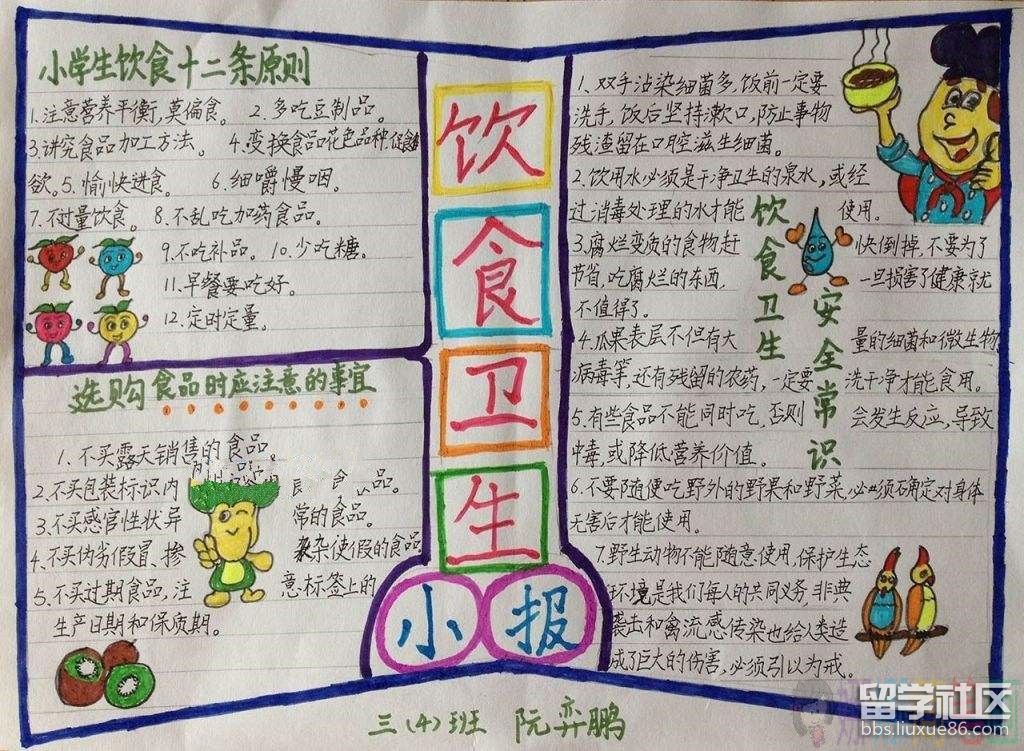 小学生饮食十二条原则
1.注意营养平衡,莫偏食。 2.多吃豆制品。
3.讲究食品加工方法。 4.变换食品花色品种,促食
欲。5.愉快进食。 6.细嚼慢咽。
7.不过量饮食。 8.不乱吃加药食品。
9.不吃补品。 10.少吃糖。
11.早餐要吃好。
12.定时定量。
选购食品时应注意的事宜
1.不买露天销售的食品。
2.不买包装标识内 食 品。
3.不买感官性状异 常的食品。
4.不买伪劣假冒、掺 杂使假的食品
5.不买过期食品,注 意标签上的
生产日期和保质期。
饮
食
卫
生
小 报
饮食卫生
安全常识
1.双手沾染细菌多,饭前一定要
洗手,饭后坚持漱口,防止事物
残渣留在口腔滋生细菌。
2.饮用水必须是干净卫生的泉水,或经
过消毒处理的水才能 使用。
3.腐烂变质的食物赶 快倒掉,不要为了
节省,吃腐烂的东西, 一旦损害了健康就
不值得了。
4.瓜果表层不但有大 量的细菌和微生物
病毒等,还有残留的农药,一定要 洗干净才能食用。
5.有些食品不能同时吃,否则 会发生反应,导致
中毒,或降低营养价值。
6.不要随便吃野外的野果和野菜,必须确定对身体
无害后才能使用。
7.野生动物不能随意使用,保护生态
环境是我们每人的共同义务,非典
袭击和禽流感传染也给人类造
成了巨大的伤害,必须引以为戒。
三(4)班 阮弈鹏
留学社区
bbs.liuxue86.com